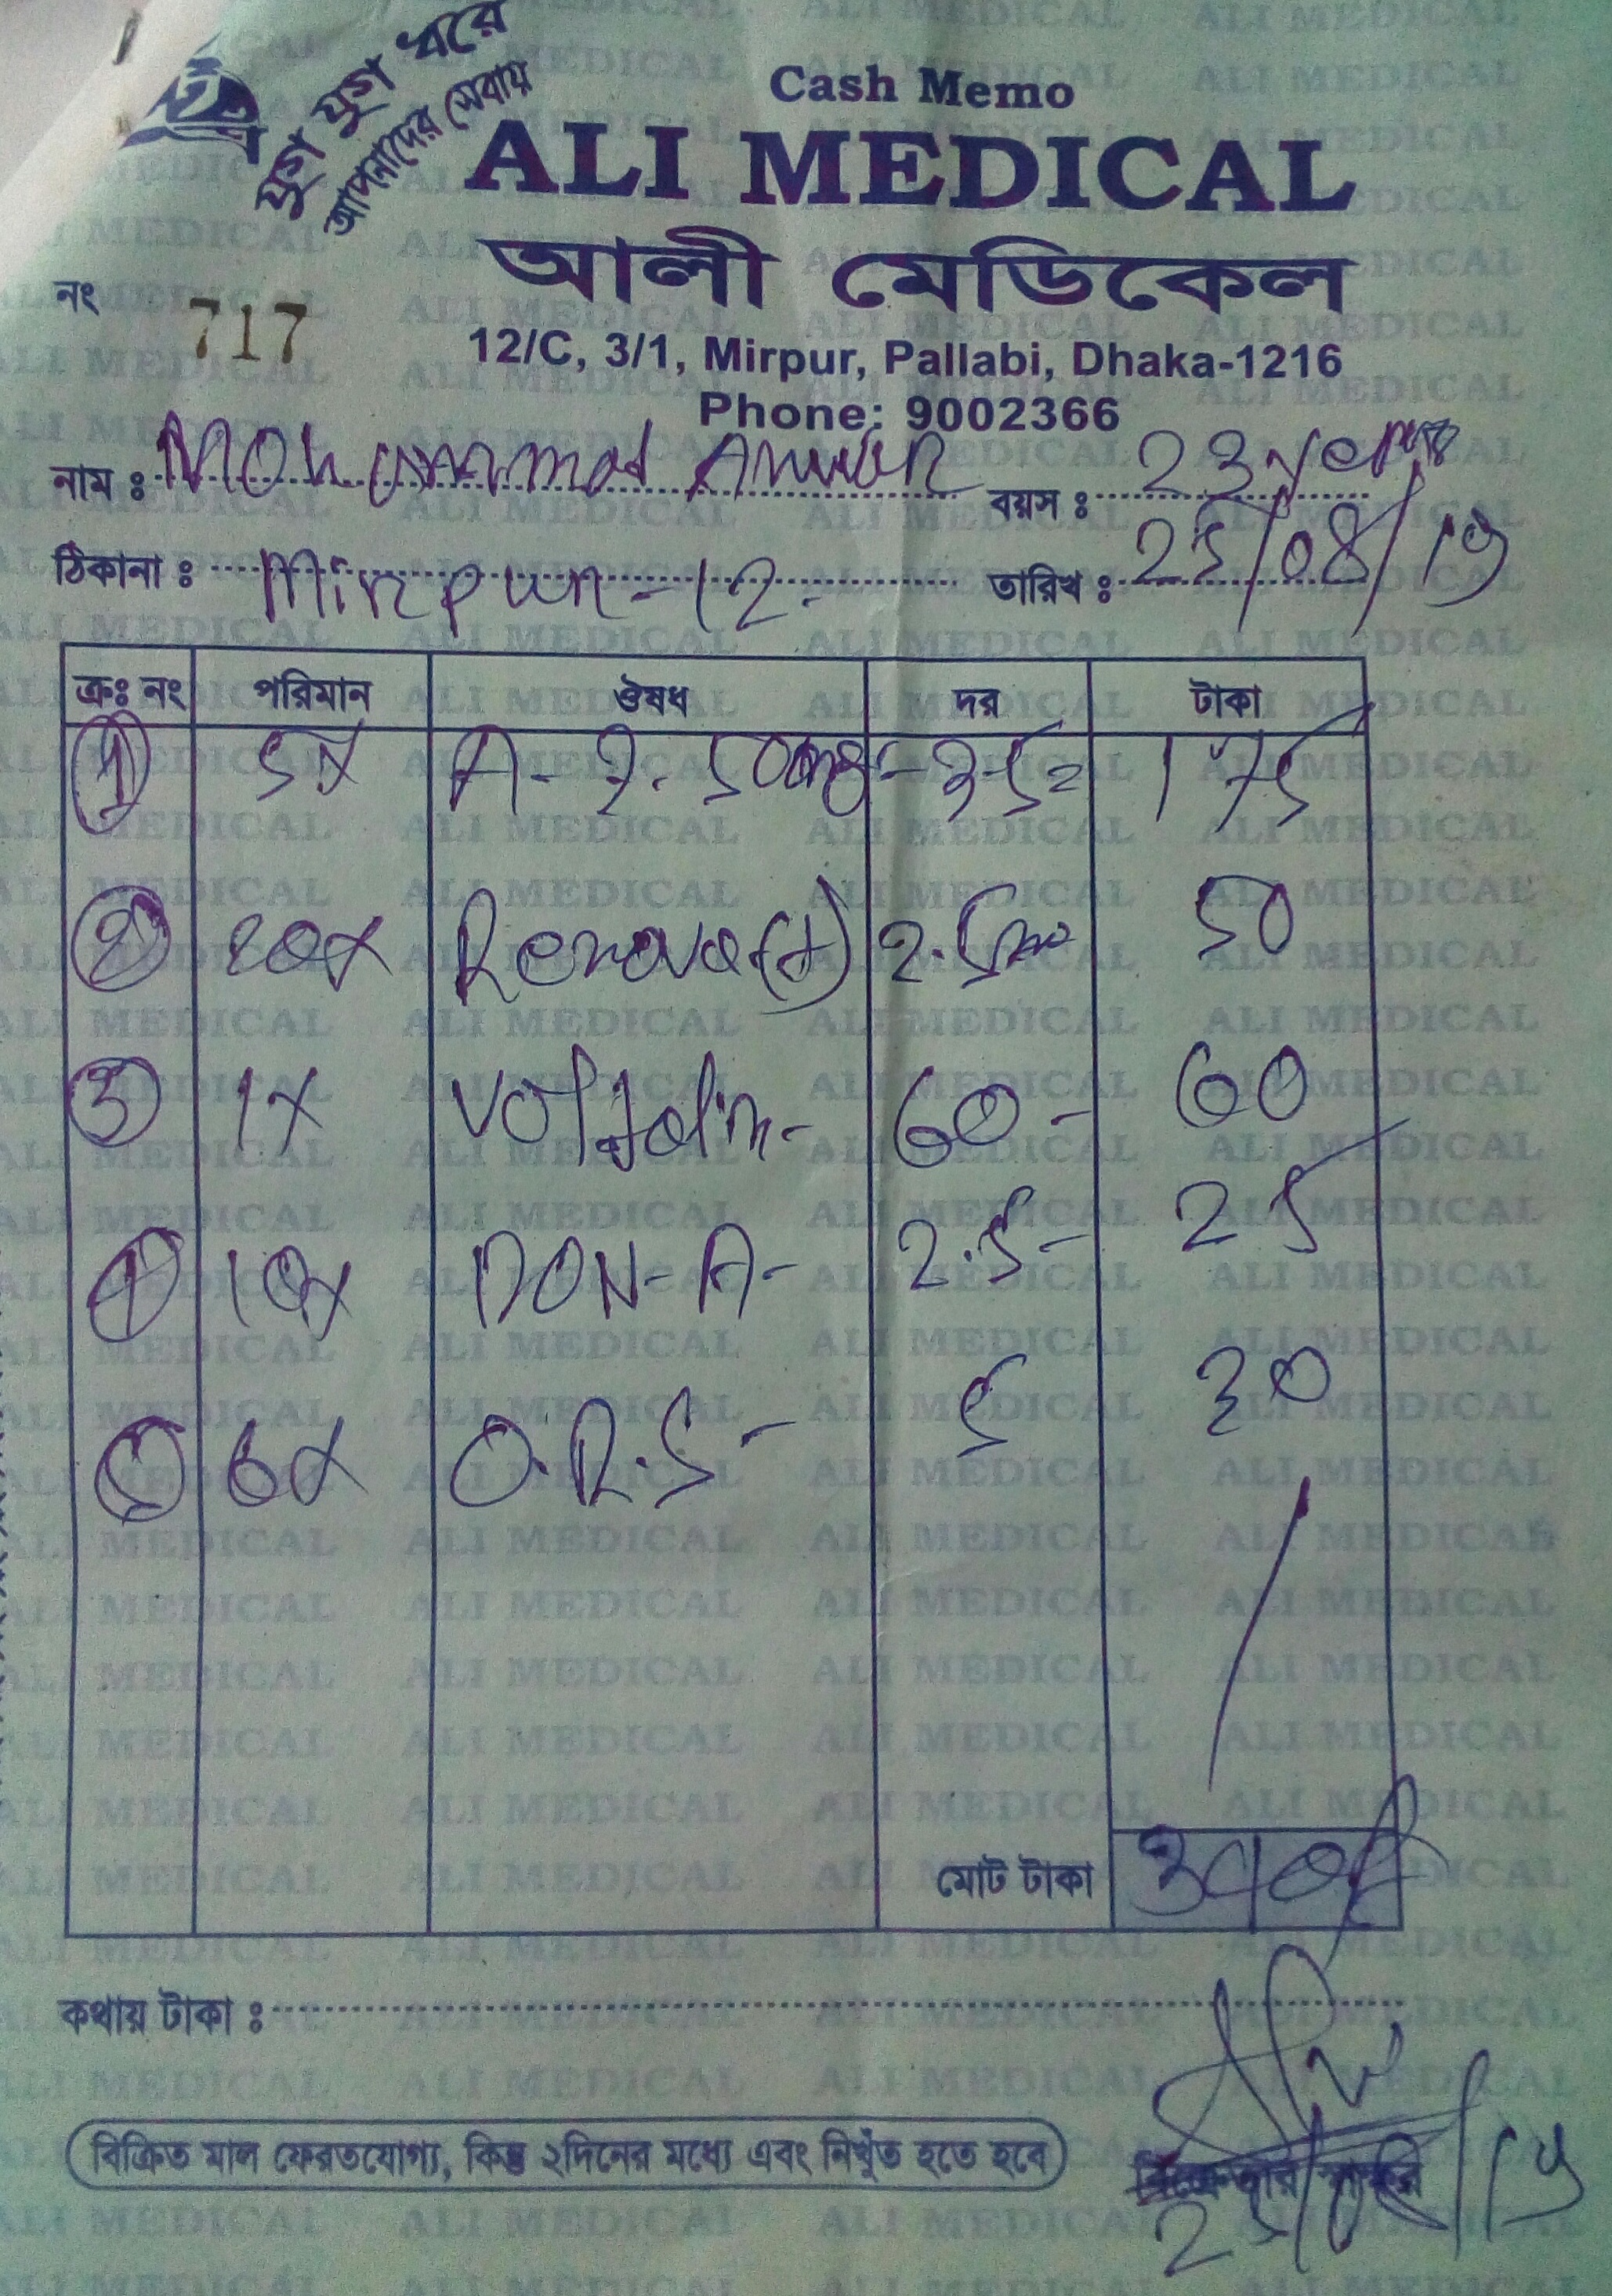 যুগ যুগ ধরে
আপনাদের সেবায়
Cash Memo
ALI MEDICAL
আলী মেডিকেল
নং 717
12/C, 3/1, Mirpur, Pallabi, Dhaka-1216
Phone: 9002366
নাম ঃ Mohammad Anwar বয়স ঃ 23 years
ঠিকানা ঃ Mirpur-12. তারিখ ঃ 25/08/19
ক্রঃ নং পরিমান ঔষধ দর টাকা
১ 5X A-Z. 500mg - 35= 175
২ 20X Renova(+) 2.5 50
৩ 1X Voltalin- 60- 60
৪ 10X DON-A- 2.5- 25
৫ 6X O.R.S- 5 30
মোট টাকা 340/
কথায় টাকা ঃ
বিক্রিত মাল ফেরতযোগ্য, কিন্তু ২দিনের মধ্যে এবং নিখুঁত হতে হবে
বিক্রেতার স্বাক্ষর
25/08/19